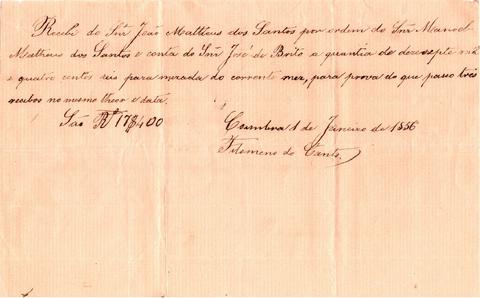 Recebi do Snr João Mattheus dos Santos por ordem do Snr Manoel
Matheus dos Santos e conta do Snr José de Brito a quantia de dezesepte mil
e quatro centos reis para mezada do corrente mez, para prova do que passo três
recibos no mesmo theor e data.
São Rs 17$400
Coimbra 1 de Janeiro de 1886
Filomeno do Canto.